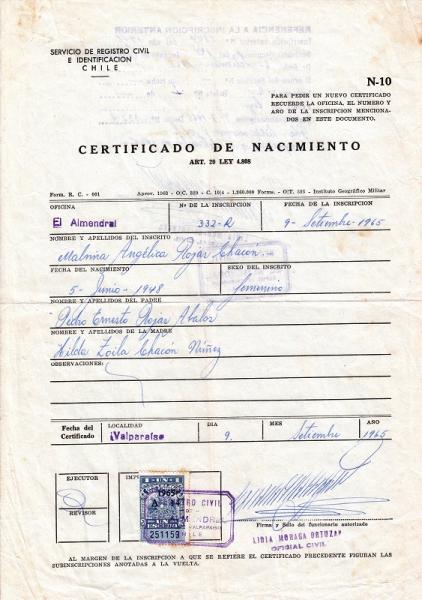 SERVICIO DE REGISTRO CIVIL
E IDENTIFICACION
CHILE
N-10
PARA PEDIR UN NUEVO CERTIFICADO
RECUERDE LA OFICINA, EL NUMERO Y
AÑO DE LA INSCRIPCION MENCIONA-
DOS EN ESTE DOCUMENTO.
CERTIFICADO DE NACIMIENTO
ART. 20 LEY 4.808
Form. R. C. - 001
OFICINA Nº DE LA INSCRIPCION FECHA DE LA INSCRIPCION
El Almendral 332-R 9- Setiembre -1965
NOMBRE Y APELLIDOS DEL INSCRITO
Malvina Angélica Rojas Chacón
FECHA DEL NACIMIENTO SEXO DEL INSCRITO
5- Junio -1948 femenino
NOMBRE Y APELLIDOS DEL PADRE
Pedro Ernesto Rojas Abalos
NOMBRE Y APELLIDOS DE LA MADRE
Hilda Zoila Chacón Núñez
OBSERVACIONES:
Fecha del Certificado LOCALIDAD DIA MES AÑO
Valparaíso 9. Setiembre 1965
EJECUTOR
REVISOR
251159
Firma y Sello del funcionario autorizado
LIDIA MORAGA ORTUZAR
OFICIAL CIVIL
AL MARGEN DE LA INSCRIPCION A QUE SE REFIERE EL CERTIFICADO PRECEDENTE FIGURAN LAS
SUBINSCRIPCIONES ANOTADAS A LA VUELTA.